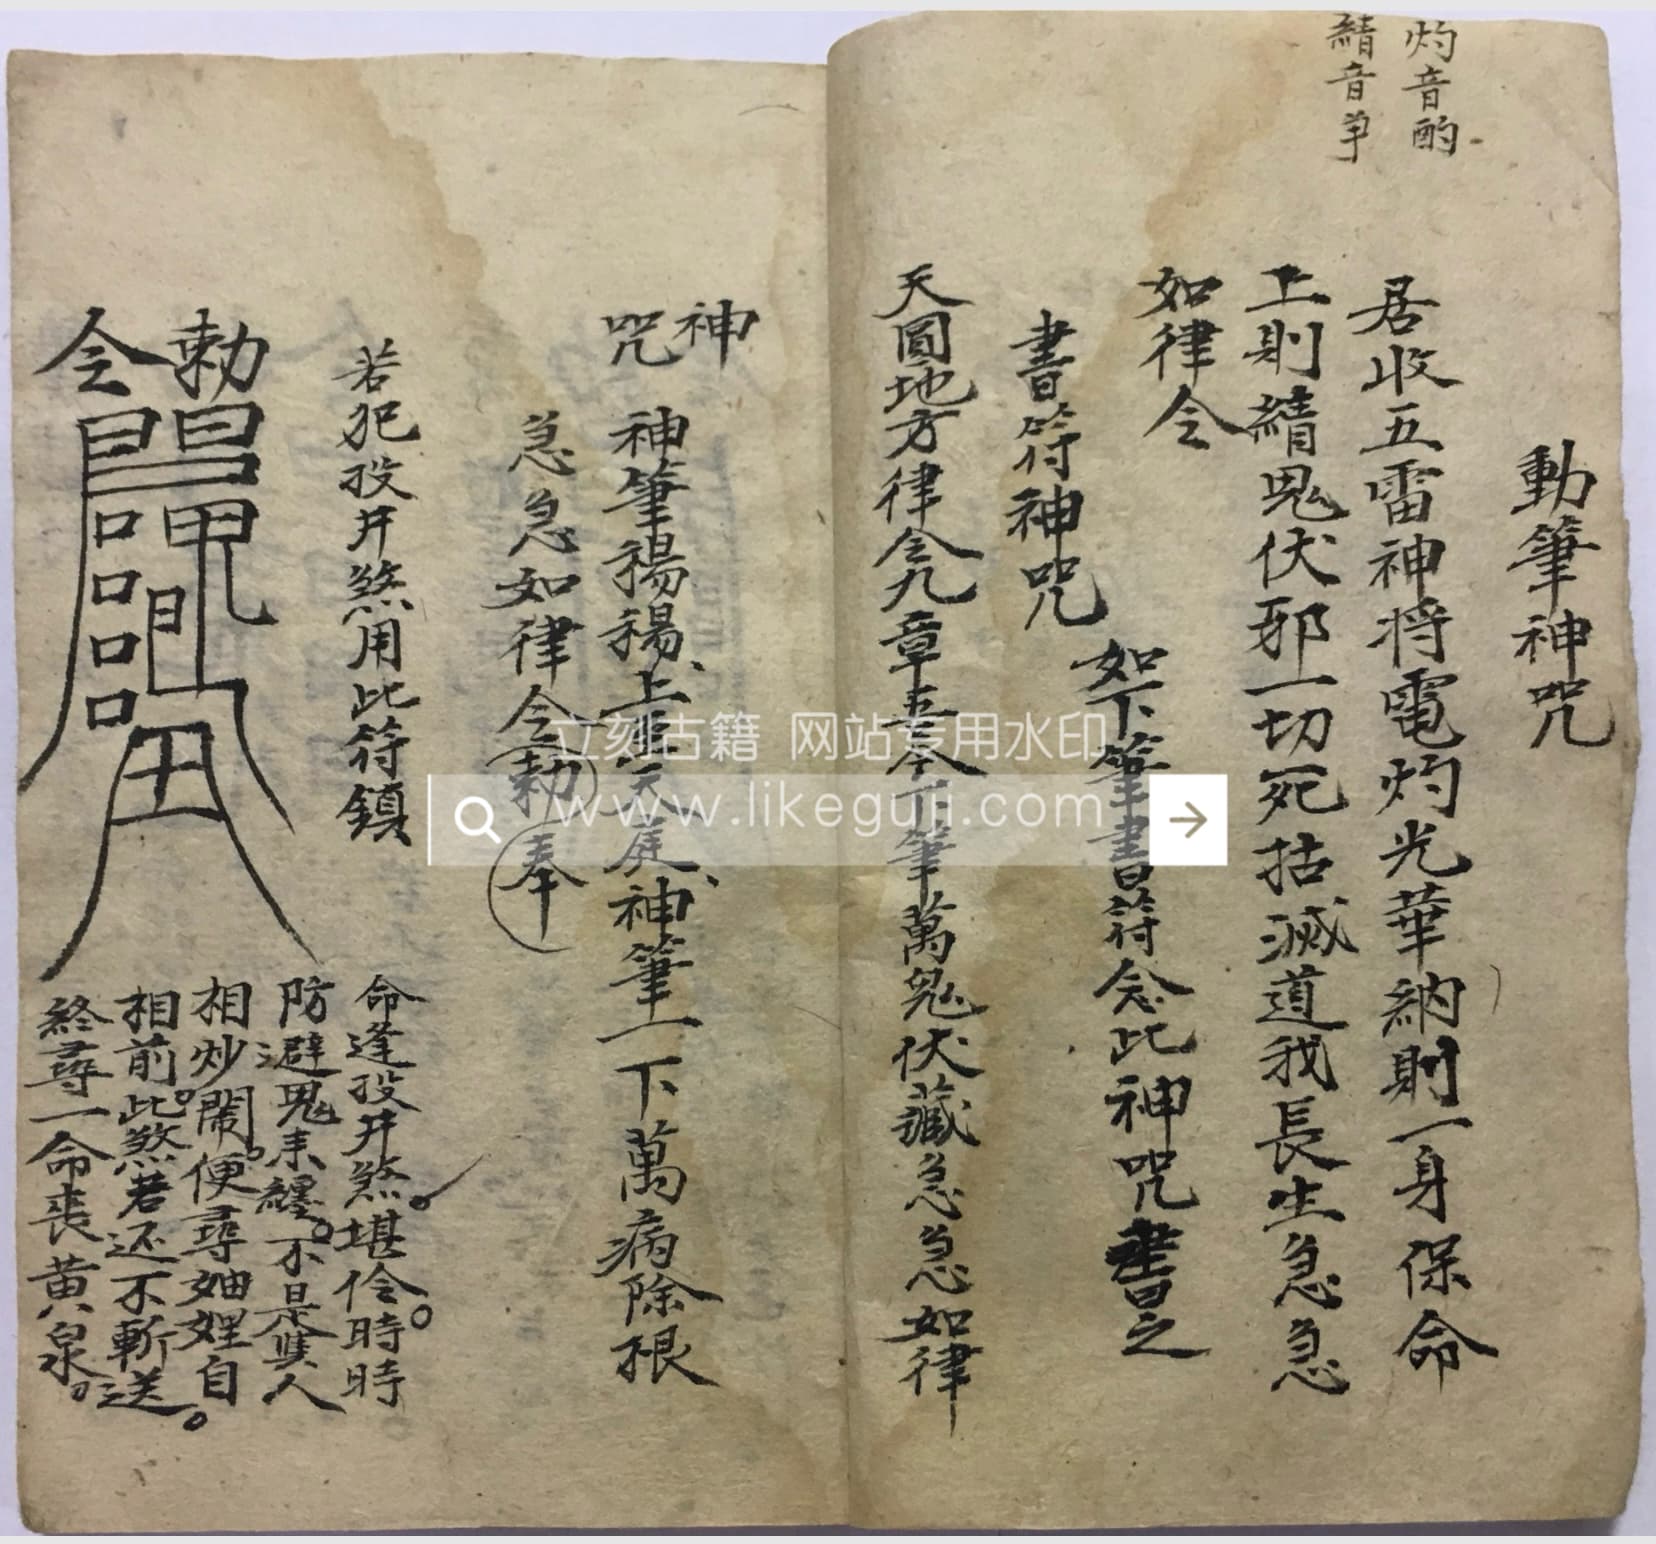 灼音酌
繢音爭
動筆神咒
居收五雷神將電灼光華納則一身保命
上則繢鬼伏邪一切死括滅道我長生急急
如律令
書符神咒
如下筆書符念此神咒書之
天圓地方律令九章吾今下筆萬鬼伏藏急急如律
神咒
神筆揚揚、上至天庭、神筆一下萬病除根
急急如律令勅奉
若犯投井煞用此符鎮
勅令
命逢投井煞。堪伶。時時
防避鬼來纏。不是與人
相炒鬧。便尋妯娌自
相前。此煞若还不斬送。
終尋一命喪黃泉。
立刻古籍 网站专用水印
www.likeguji.com